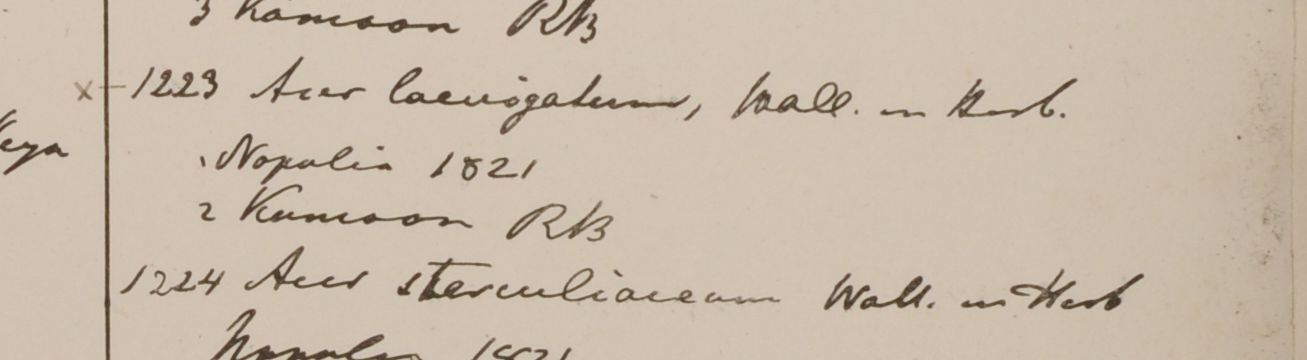 3 Kamoon RB
x 1223 Acer laevigatum, Wall. in Herb.
1 Napalia 1821
2 Kumoon RB
1224 Acer sterculiaceum Wall. in Herb
Napalia 1821